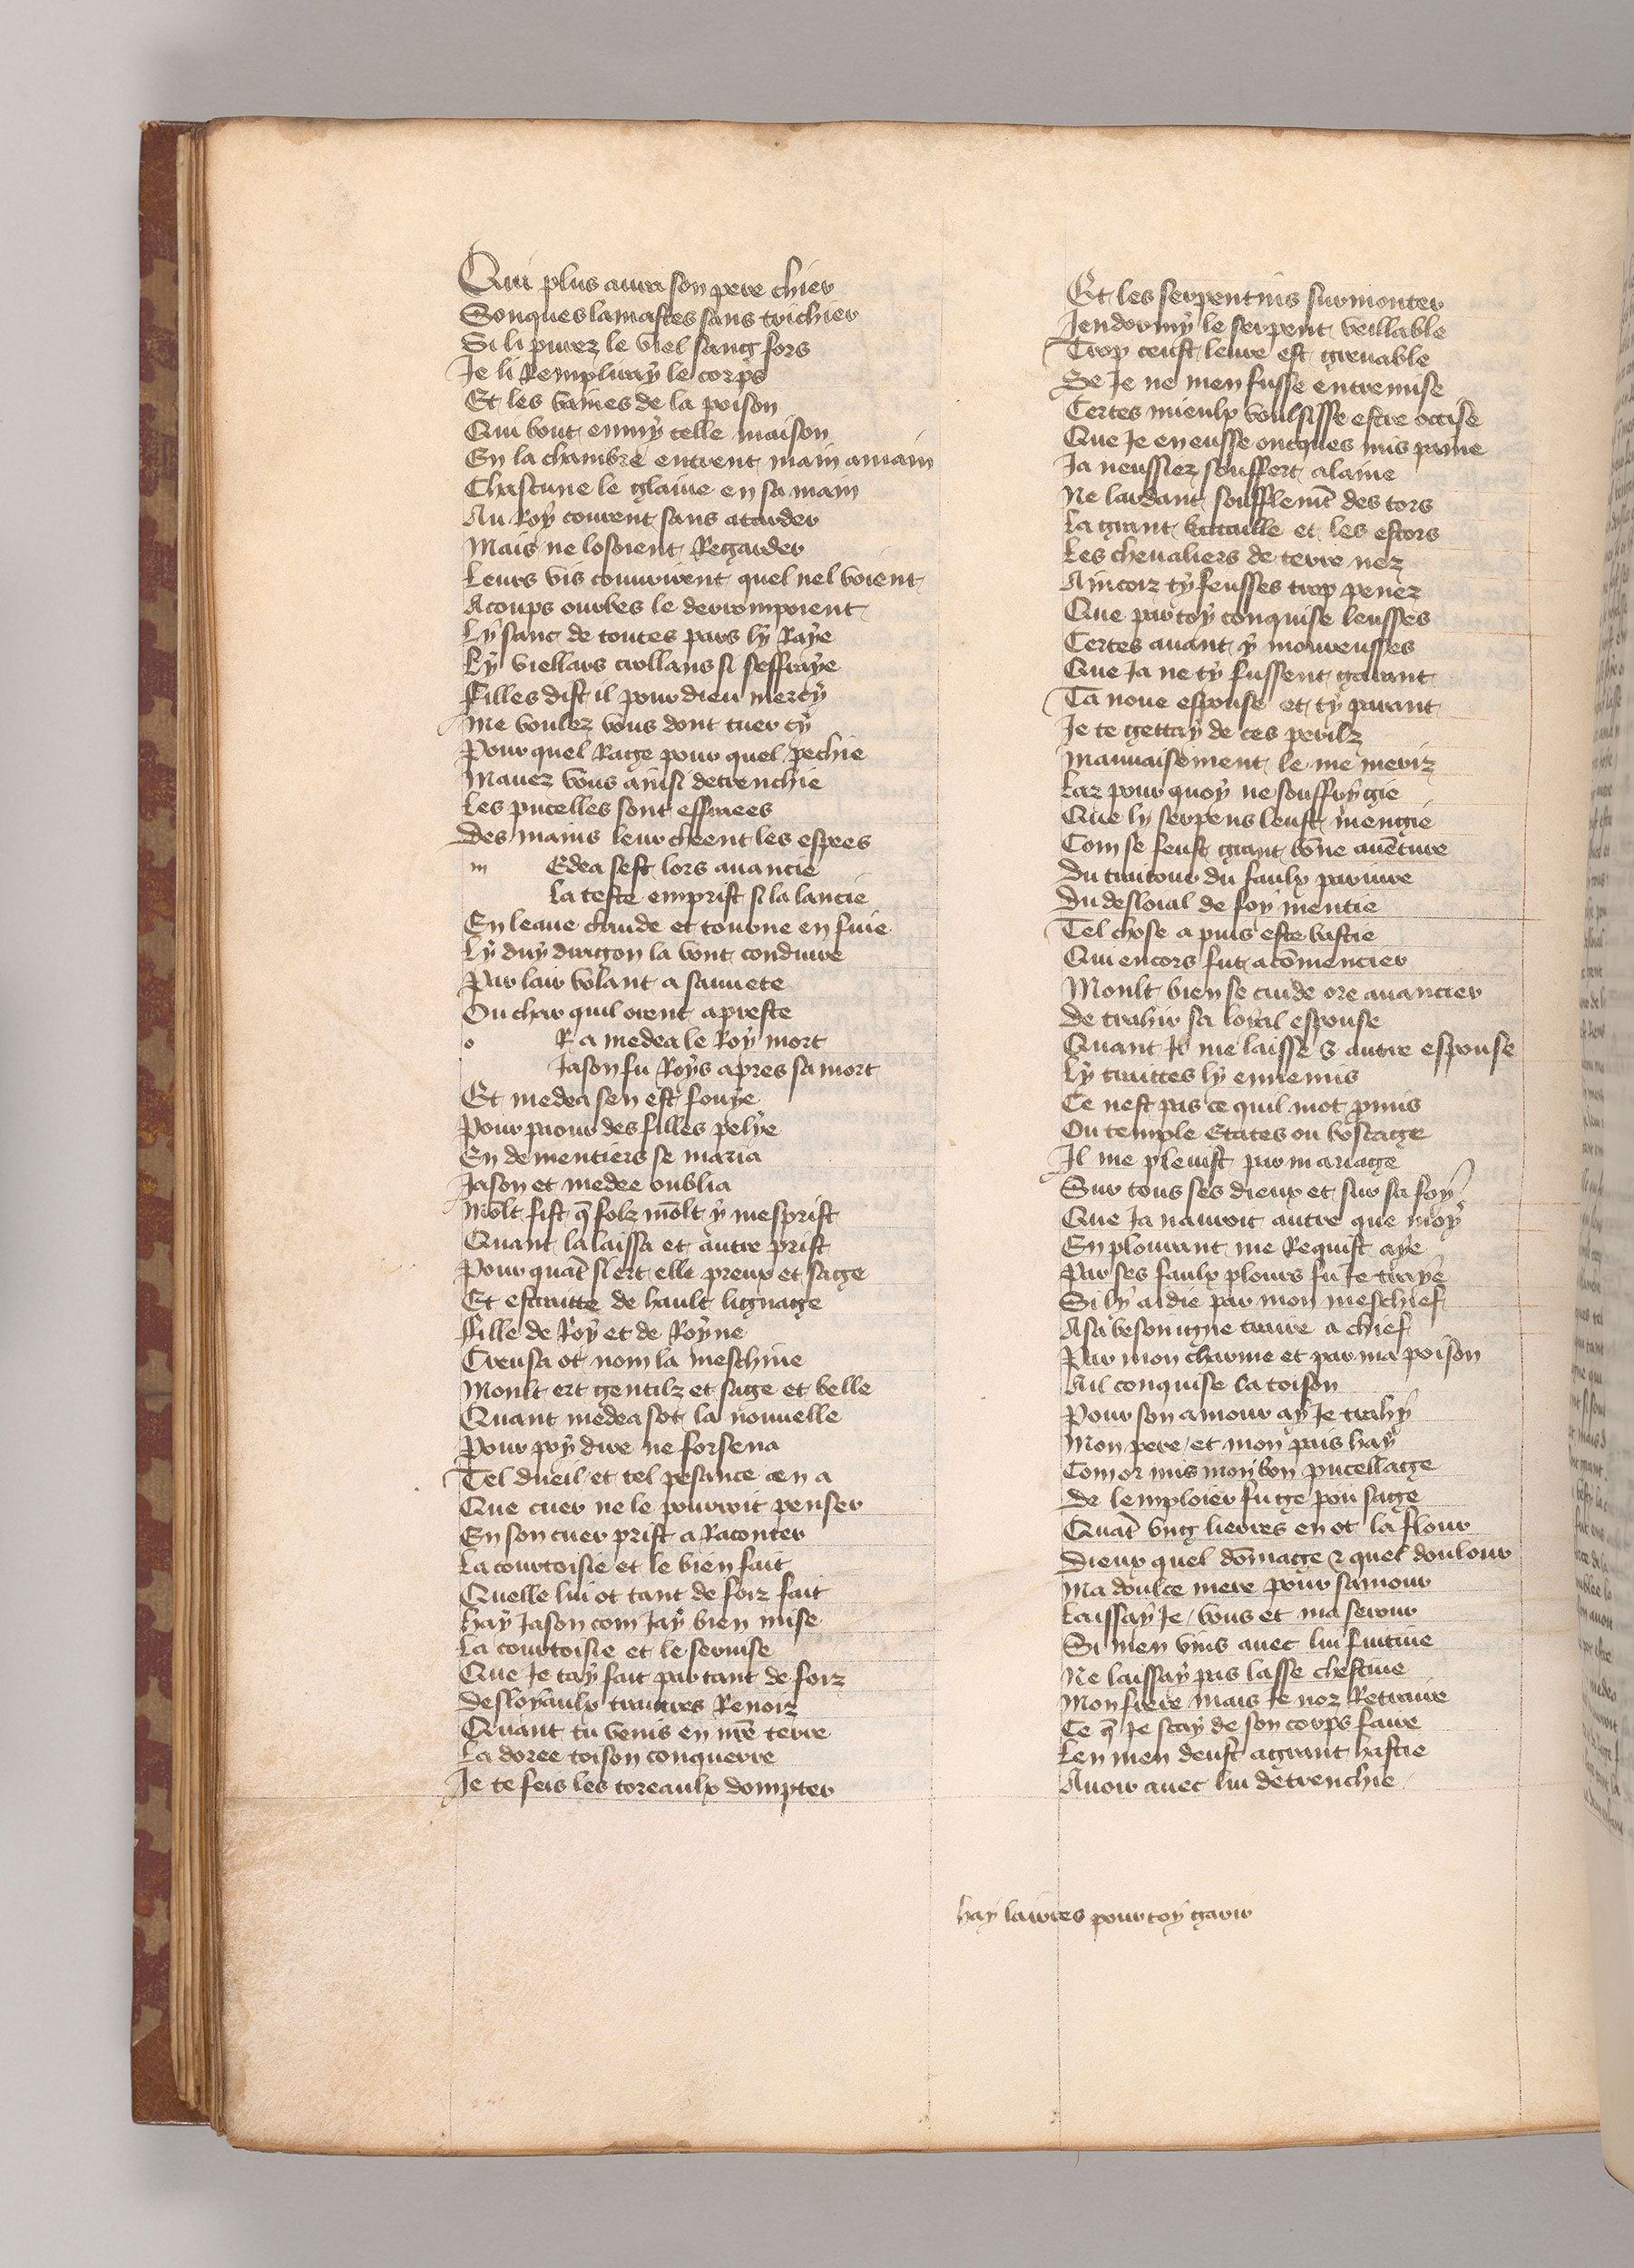 Qui plus aura son pere chier
Sonques lamastes sans trichier
Si li purez le viel sang fors
Je li Rempliray le corps
Et les vaines de la poison
Qui bout enmy celle maison
En la chambre entrent main a main
Chascune le glaiue en sa main
Au Roy courent sans atarder
Mais ne losoient Regarder
Leurs vis couurirent quel nel voient
A coups ourbes le derrompoient
Ly sanc de toutes pars ly Raye
Ly viellars crollans si seffraye
Filles dist il pour dieu mercy
Me voulez vous dont tuer cy
Pour quel Rage pour quel pechie
Mauez vous ainsi detrenchie
Les pucelles sont effraees
Des mains leur cheent les espees
m Edea sest lors auancie
La teste emprist si la lancie
En leaue chaude et tourne en fuie
Ly duy dragon la vont conduire
Par lair volant a sauuete
Ou char quil orent apreste
o R a medea le Roy mort
Jason fu Roys apres sa mort
Et medea sen est fouye
Pour paour des filles pelye
En dementiers se maria
Jason et medee oublia
Mōlt fist q̄ folz mōlt y mesprist
Quant la laissa et autre prist
Pour quāt siert elle preux et sage
Et estraitte de hault lignage
Fille de Roy et de Royne
Creusa ot nom la meschine
Moult ert gentilz et sage et belle
Quant medea sot la nouuelle
Pour poy dire ne forsena
Tel dueil et tel pesance en a
Que cuer ne le pourroit penser
En son cuer prist a Raconter
La courtoisie et le bien fait
Quelle lui ot tant de foiz fait
Hay Jason com Jay bien mise
La courtoisie et le seruise
Que Je tay fait par tant de foiz
Desloyaulx traitres Renoiz
Quant tu venis en nrē terre
La doree toison conquerre
Je te feis les toreaulx dompter
Et les serpentins surmonter
Jendormy le serpent veillable
Trop ceust leure est greuable
Se Je ne men fusse entremise
Certes mieulx voulsisse estre occise
Que Je en eusse oncques mis paine
Ja neussiez souffert alaine
Ne lardant soufflemt des tors
La grant bataille et les estors
Les cheualiers de terre nez
Aincoiz ty feusses trop penez
Que par toy conquise leusses
Certes auant y moureusses
Que Ja ne ty fussent garant
Ta noue espouse et ty parant
Je te gettay de ces perilz
Mauuaisement le me meriz
Laz pour quoy ne souffry gie
Que ly serpens leust mengie
Com se feust grant bōne auēture
Du traitour du faulx pariure
Du desloial de foy mentie
Tel chose a puis este bastie
Qui encors fut a cōmencier
Moult bien se cuide ore auancier
De trahir sa loyal espouse
Quant Il me laisse & autre espouse
Ly traittes ly ennemis
Ce nest pas ce quil mot pmis
Ou temple Etates ou boscage
Il me pleuist par mariage
Sur tous ses dieux et sur sa foy
Que Ja nauroit autre que moy
En plourant me Requist aye
Par ses faulx plours fu Je traye
Si ly aidie par mon meschief
A sa besoingne traire a chief
Par mon charme et par ma poison
Ail conquise la toison
Pour son amour ay Je trahy
Mon pere et mon pais hay
Com or mis mon bon pucellage
De lemploier fu ge pou sage
Quāt vng lierres en ot la flour
Dieux quel dōmage & quel doulour
Ma doulce mere pour samour
Laissay Je vous et ma serour
Si men vins auec lui fuitiue
Ne laissay pas lasse chestiue
Mon frere mais Je noz Retraire
Ce q̄ Je scay de son corps faire
Len men deust a grant hastie
Auoir auec lui detrenchie
hay lairres pour toy garir